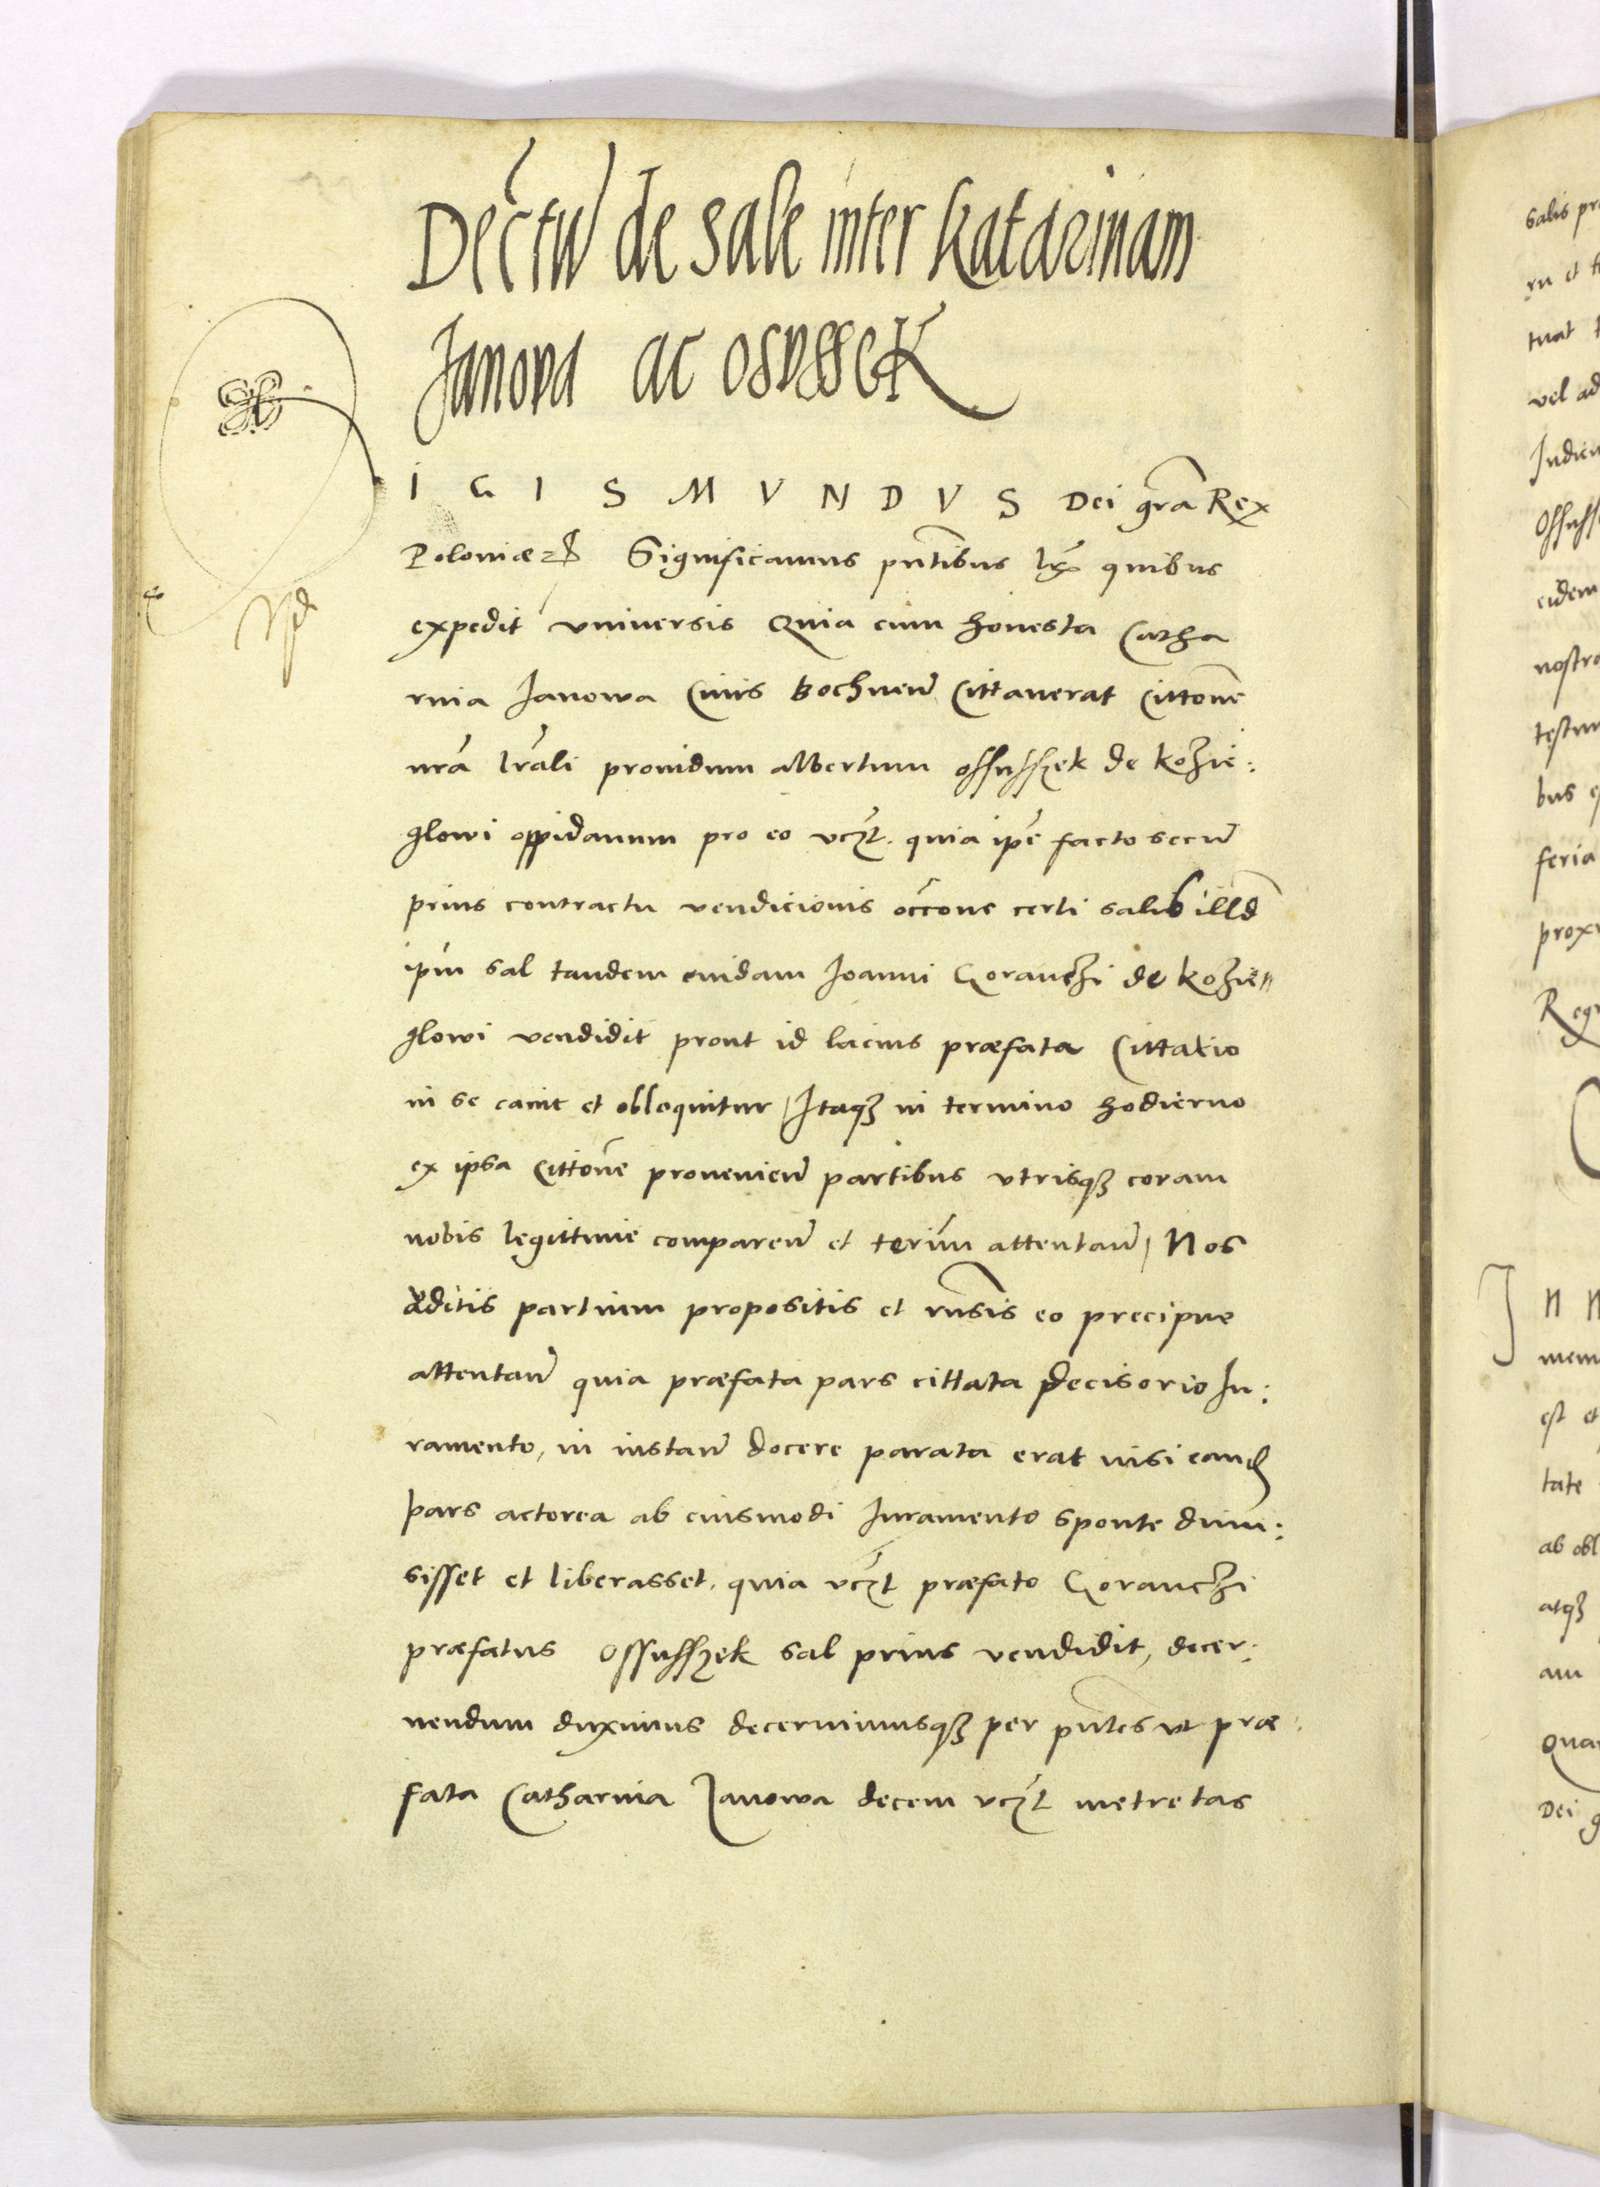 Decretũ de sale inter Katarzinam
Janova ac osvssek
I G I S M V N D V S Dei grã Rex
Poloniæ Significamus pñtibus quibus
expedit vniversis Quia cum honesta Catha
rina Janowa Civis Bochnen̄ Cittaverat Cittone
nrã lrãli providum albertum ossusszek de kozie:
glowi oppidanum pro eo vcz̃t. quia ipẽ facto secum̃
prius contractu vendicionis occõne certi salis illd
ipm̃ sal tandem cuidam Joanni Goranczi de kozie"
glowi vendidit prout id lacius præfata Cittatio
in se canit et obloquitur, Itaqȝ in termino hodierno
ex ipsa Cittone provenien̄ partibus vtrisqȝ coram
nobis legittime comparen̄ et terim̃ attentan̄, Nos
auditis partium propositis et rñsis eo precipue
attentan̄ quia præfata pars cittata decisorio Ju:
ramento, in instan̄ docere parata erat nisi eand
pars actorea ab eiusmodi Juramento sponte dimi:
sisset et liberasset, quia vcz̃t præfato Goranczi
præfatus Ossusszek sal prius vendidit, decer:
nendum duximus decernimusqȝ per pñtes vt præ
fata Catharina Janowa decem vcz̃t metretas
salis
vel ad
eidem
bus
feria
J n n
est et
tate
ab obl
atqȝ
Dei g